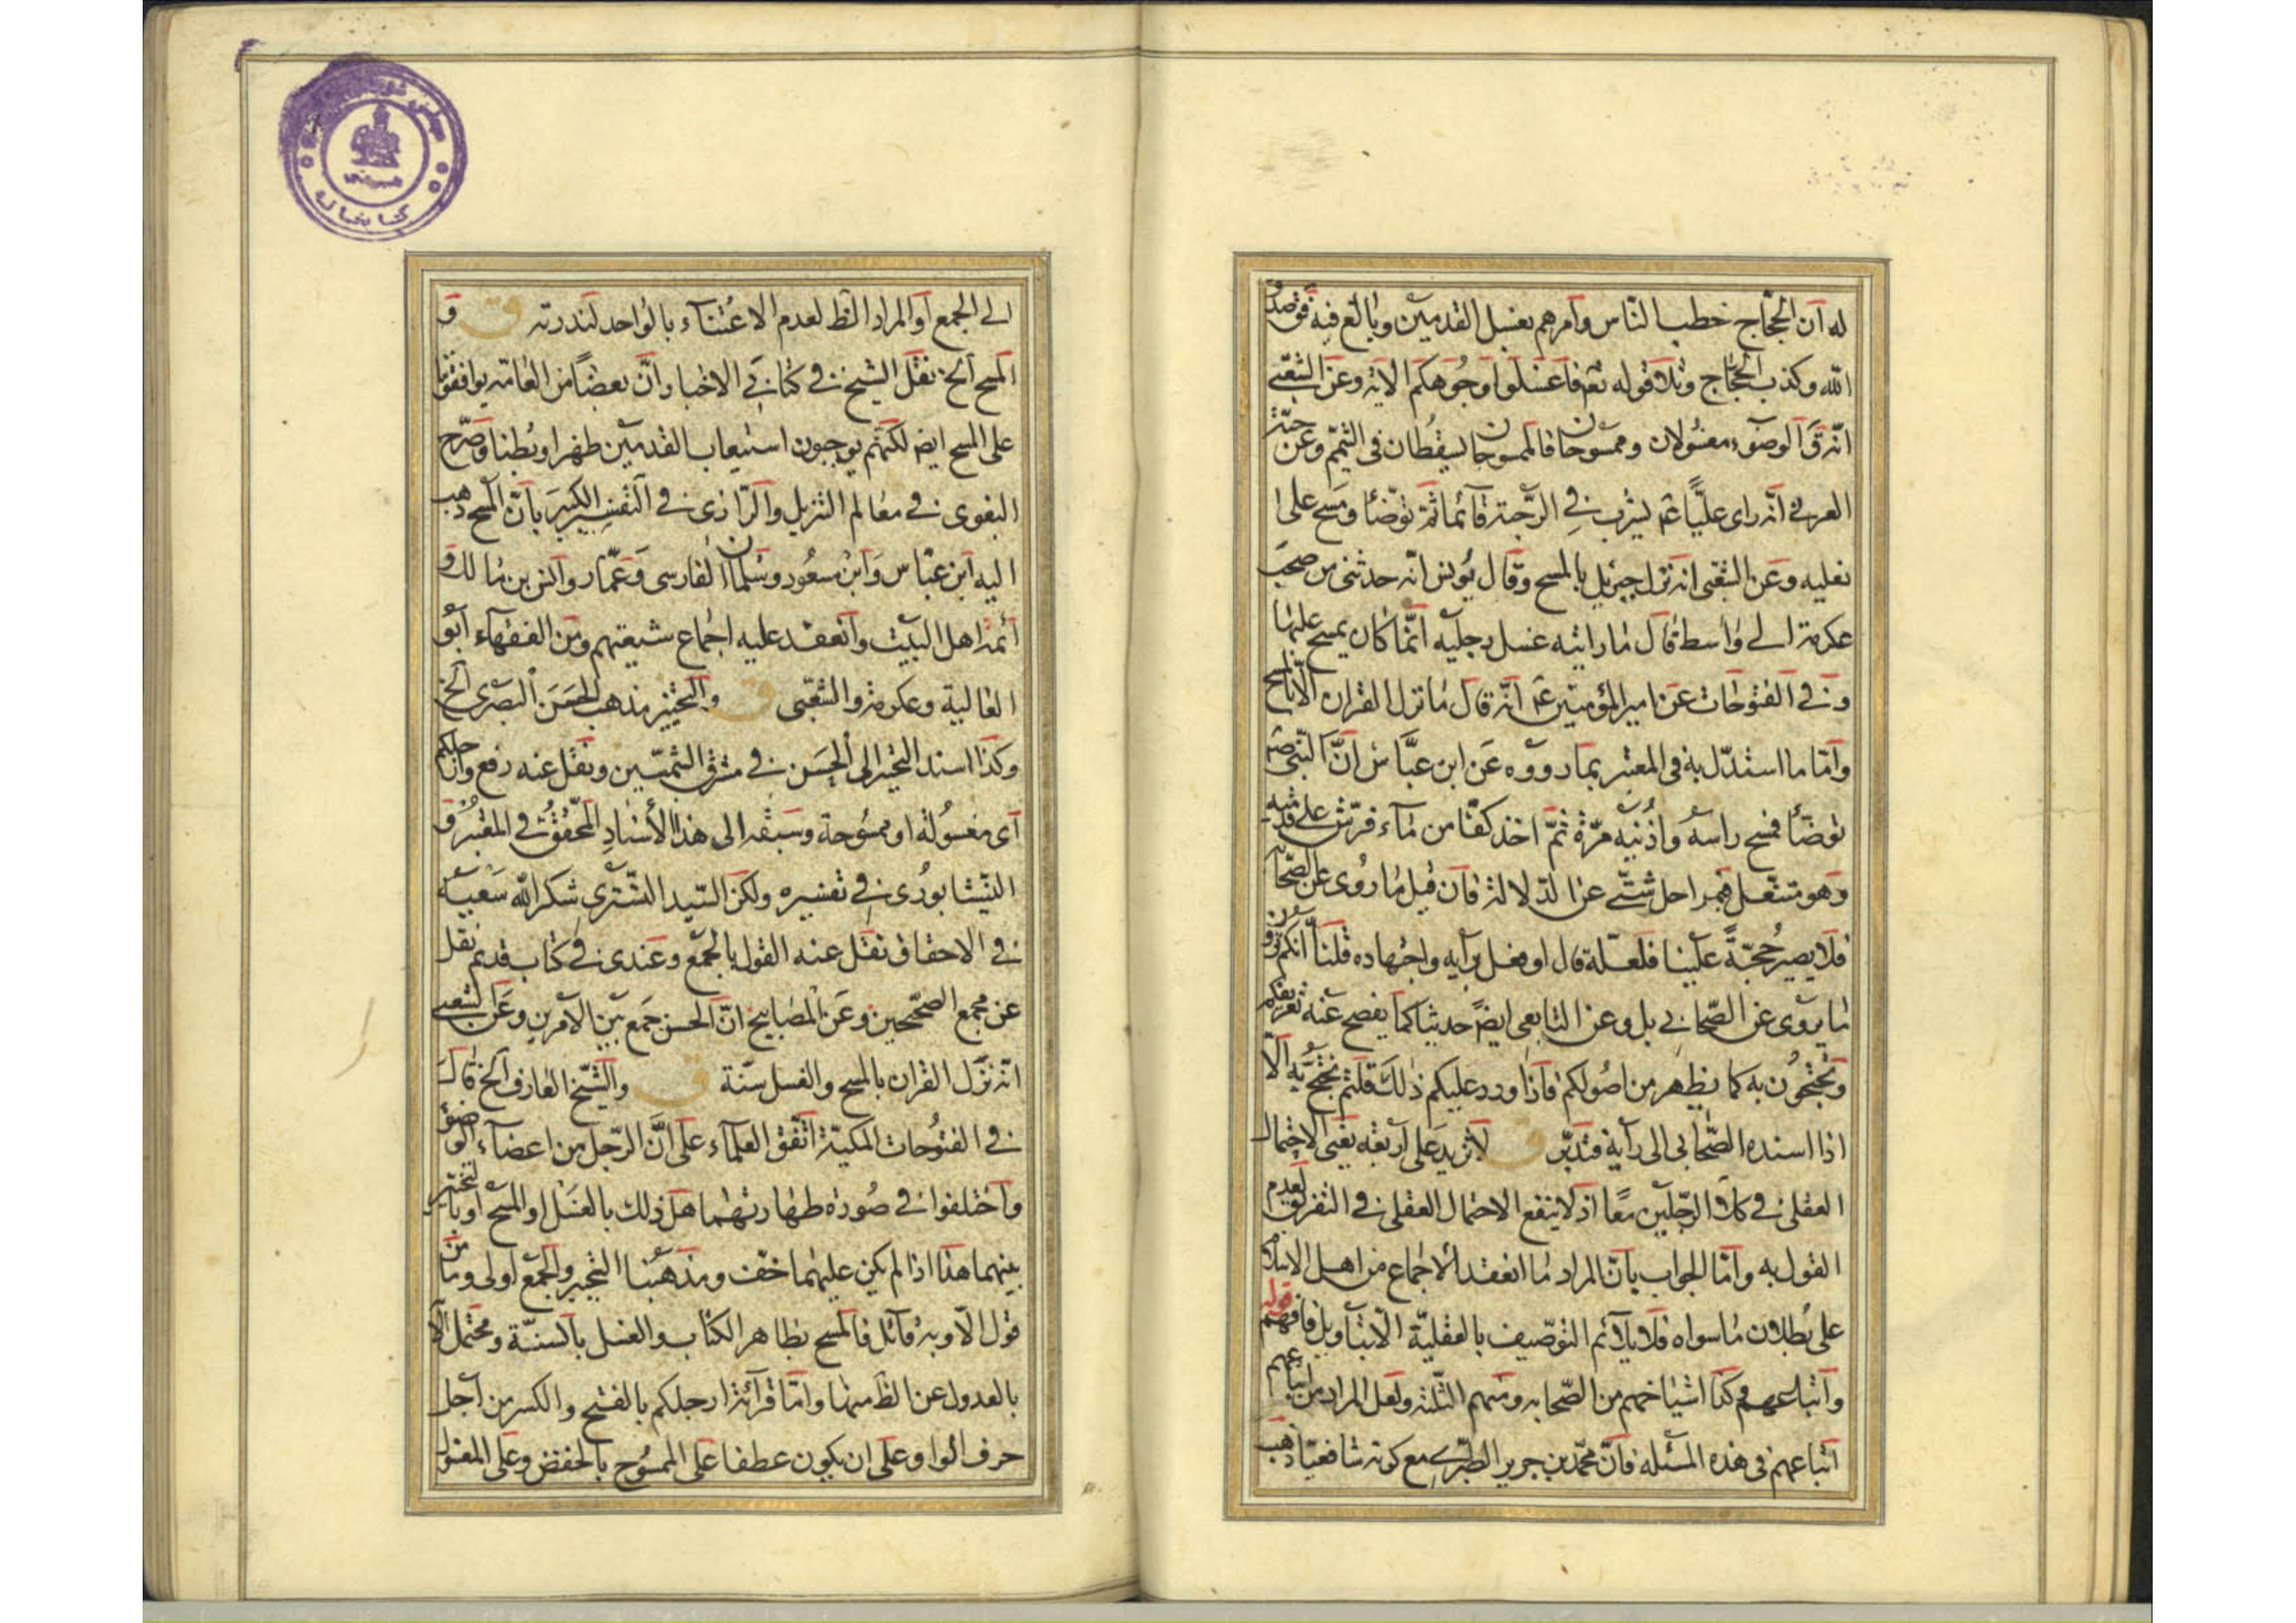 له ان الحجاج خطب الناس وامرهم بغسل القدمين وبالغ فيه فق صدق
الله وكذب الحجاج وتلا قوله تعم فاغسلوا وجوهكم الاية وعن الشعبي
انه ق الوضوء مغسولان وممسوحان فالممسوحان يسقطان في التيمم وعن حبة
العرني انه راى عليا ع يشرب في الرحبة قائما ثم توضا ومسح على
نعليه وعن الشعبي انه نزل جبرئيل بالمسح وقال يونس انه حدثني من صحب
عكرمة الى واسط قال ما رايته غسل رجليه انما كان يمسح عليهما
وفي الفتوحات عن امير المؤمنين ع انه قال ما نزل القران الا بالمسح
واما ما استدل به في المعتبر بما رووه عن ابن عباس ان النبي ص
توضا فمسح راسه واذنيه مرة ثم اخذ كفا من ماء فرش على قدميه
وهو متنعل فبمراحل شتى عن الدلالة فان قيل ما روى عن الصحابي
فلا يصير حجة علينا فلعله قال او فعل برايه واجتهاده قلنا انكم ترون
ما يروى عن الصحابي بل وعن التابعي ايض حديثا كما يفصح عنه تعريفكم
وتحتجون به كما يظهر من اصولكم فاذا ورد عليكم ذلك قلتم نحتج به الا
اذا اسنده الصحابي الى رأية فتدبر ق لا تزيد على اربعة يعني الاحتمال
العقلي في كلا الرجلين معا اذ لا ينفع الاحتمال العقلي في التفريق لعدم
القول به واما الجواب بان المراد ما انعقد الاجماع من اهل الاسلام
على بطلان ما سواه فلا يلائم التوصيف بالعقلية الا بتاويل فافهم قوله
واتباعهم وكذا اشياخهم من الصحابه ومنهم الثلثه ولعل المراد من اتباعهم
اتباعهم في هذه المسئله فان محمد بن جرير الطبري مع كونه شافعيا ذهب
الى الجمع او المراد الظ لعدم الاعتناء بالواحد لندرته ق ق
المسح الخ نقل الشيخ في كتابي الاخبار ان بعضا من العامه يوافقونا
على المسح ايض لكنهم يوجبون استيعاب القدمين ظهرا وبطنا وصرح
البغوى في معالم التنزيل والرازى في التفسير الكبير بان المسح ذهب
اليه ابن عباس وابن مسعود وسلمان الفارسى وعمار وانس بن مالك و
ائمة اهل البيت وانعقد عليه اجماع شيعتهم ومن الفقهاء ابو
العالية وعكرمة والشعبى ق والتخيير مذهب الحسن البصرى الخ
وكذا اسند التخيير الى الحسن في مشرق الشمسين ونقل عنه رفع وارجلكم
اى مغسولة او ممسوحة وسبقه الى هذا الأسناد المحقق في المعتبر و
النيشابورى في تفسيره ولكن السيد الشسترى شكر الله سعيه
في الاحقاق نقل عنه القول بالجمع وعندى في كتاب قديم نقل
عن مجمع الصحيحين وعن المصابيح ان الحسن جمع بين الامرين وعن الشعبي
انه نزل القران بالمسح والغسل سنة ق والشيخ العارف الخ قال
في الفتوحات المكية اتفق العلماء على ان الرجل من اعضاء الوضوء
واختلفوا في صورة طهارتهما هل ذلك بالغسل او المسح او بالتخيير
بينهما هذا اذا لم يكن عليهما خف ومذهبنا التخيير والجمع اولى وما من
قول الا وبه قائل فالمسح بظاهر الكتاب والغسل بالسنة ومحتمل الآ
بالعدول عن الظ منها واما قرائة ارجلكم بالفتح والكسر من اجل
حرف الواو على ان يكون عطفا على الممسوح بالخفض وعلى المغسول
كاشان